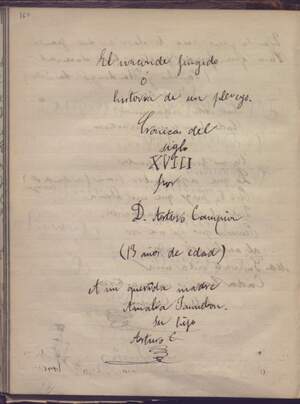 El vizconde fingido
ó
historia de un plebeyo.
Crónicas del
siglo
XVIII
por
D. Arturo Campión
(13 años de edad)
A mi querida madre
Amalia
Su hijo
Arturo C.